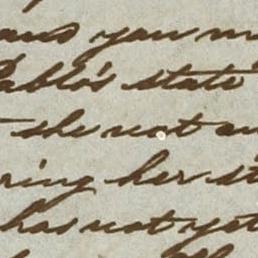 and you m
Pablo's state
she not au
ring her st
has not yet